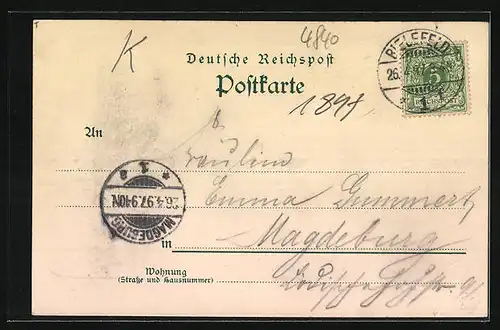 K
4840
Deutsche Reichspost
Postkarte
1897
BIELEFELD
26.
1
5
REICHSPOST
An
Fräulein
Emma Gummert,
MAGDEBURG
26.4.97.9-10N.
1
in Magdeburg
Wohnung
(Straße und Hausnummer)